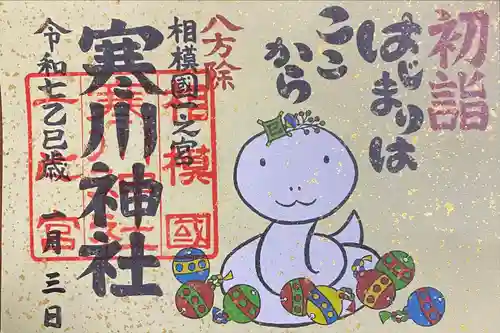 初詣
はじまりは
ここ
から
八方除
相模國一之宮
寒川神社
令和七乙巳歳 一月三日
相模國
一之宮